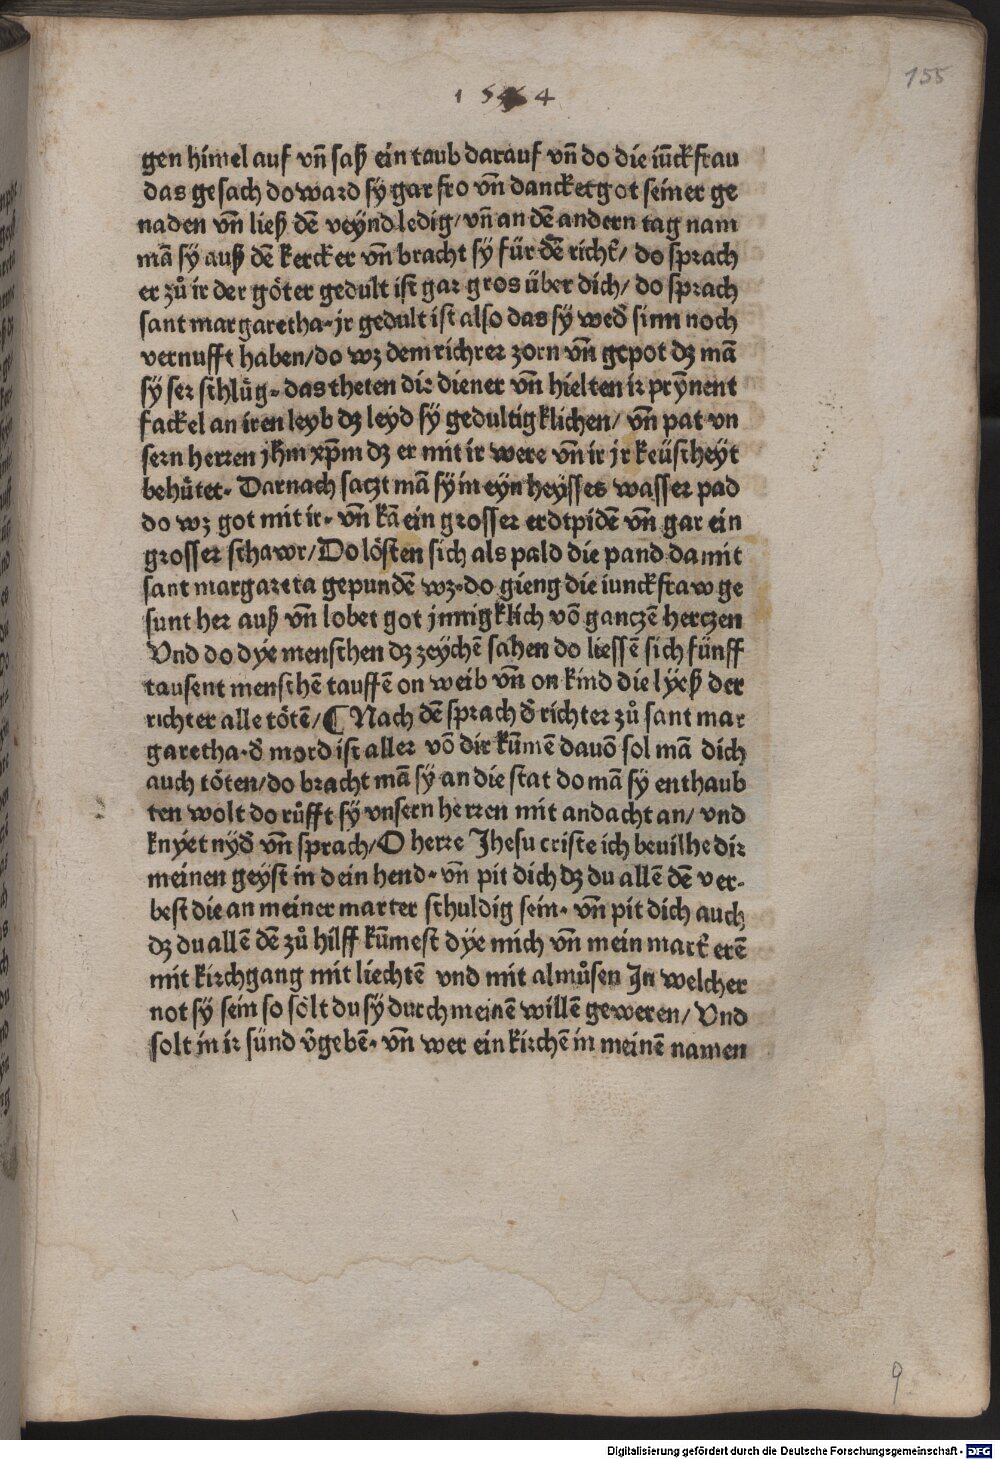 155
gen himel auf vñ saß ein taub darauf vñ do die iũckfrau
das gesach do ward sÿ gar fro vñ dancket got seiner ge
naden vñ ließ dẽ veÿnd ledig/ vñ an dẽ andern tag nam
mã sÿ auß dẽ kercker vñ bracht sÿ für dẽ richt̃/ do sprach
er zů ir der göter gedult ist gar gros über dich/ do sprach
sant margaretha. jr gedult ist also das sÿ wed̃ sinn noch
vernufft haben/ do wz dem richrer zorn vñ gepot dz mã
sÿ ser schlüg. das theten dir diener vñ hielten ir prÿnent
fackel an iren leyb dz leyd sÿ gedultigklichen/ vñ pat vn
sern herren jhm̃ xp̃m dz er mit ir were vñ ir jr keüscheÿt
behůtet. Darnach saczt mã sÿ in eÿn heÿsses wasser pad
do wz got mit ir. vñ kã ein grosser erdtpidẽ vñ gar ein
grosser schawr/ Do lösten sich als pald die pand da mit
sant margareta gepundẽ wz. do gieng die iunckfraw ge
sunt her auß vñ lobet got jnnigklich võ ganczẽ herczen
Vnd do dÿe menschen dz zeÿchẽ sahen do liessẽ sich fünff
tausent menschẽ tauffẽ on weib vñ on kind die lÿeß der
richter alle tötẽ/ ¶ Nach dẽ sprach d̃ richter zů sant mar
garetha. d̃ mord ist aller võ dir kũmẽ davõ sol mã dich
auch töten/ do bracht mã sÿ an die stat do mã sÿ enthaub
ten wolt do růfft sÿ vnsern herren mit andacht an/ vnd
knÿet nÿd̃ vñ sprach/ O herre Jhesu criste ich bevilhe dir
meinen geÿst in dein hend. vñ pit dich dz du allẽ dẽ ver-
best die an meiner marter schuldig sein. vñ pit dich auch
dz du allẽ dẽ zů hilff kũmest dÿe mich vñ mein mart̃ erẽ
mit kirchgang mit liechtẽ vnd mit almůsen Jn welcher
not sÿ sein so sölt du sÿ durch meinẽ willẽ geweren/ Vnd
solt in ir sünd ṽgebẽ. vñ wer ein kirchẽ in meinẽ namen
9
Digitalisierung gefördert durch die Deutsche Forschungsgemeinschaft - DFG